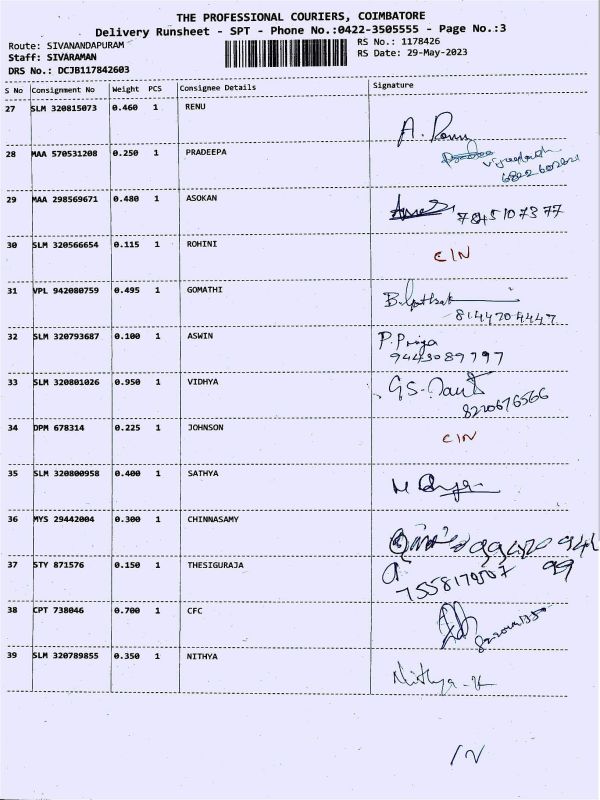 THE PROFESSIONAL COURIERS, COIMBATORE
Delivery Runsheet - SPT - Phone No.:0422-3505555 - Page No.:3
Route: SIVANANDAPURAM
RS No.: 1178426
Staff: SIVARAMAN
RS Date: 29-May-2023
DRS No.: DCJB117842603
S No Consignment No Weight PCS Consignee Details Signature
27 SLM 320815073 0.460 1 RENU
28 MAA 570531208 0.250 1 PRADEEPA
29 MAA 298569671 0.480 1 ASOKAN
7845107377
30 SLM 320566654 0.115 1 ROHINI
C/N
31 VPL 942080759 0.495 1 GOMATHI
8144704447
32 SLM 320793687 0.100 1 ASWIN
P. Priya
9443089797
33 SLM 320801026 0.950 1 VIDHYA
8220676566
34 DPM 678314 0.225 1 JOHNSON
C/N
35 SLM 320800958 0.400 1 SATHYA
36 MYS 29442004 0.300 1 CHINNASAMY
37 STY 871576 0.150 1 THESIGURAJA
38 CPT 738046 0.700 1 CFC
39 SLM 320789855 0.350 1 NITHYA
Nithya